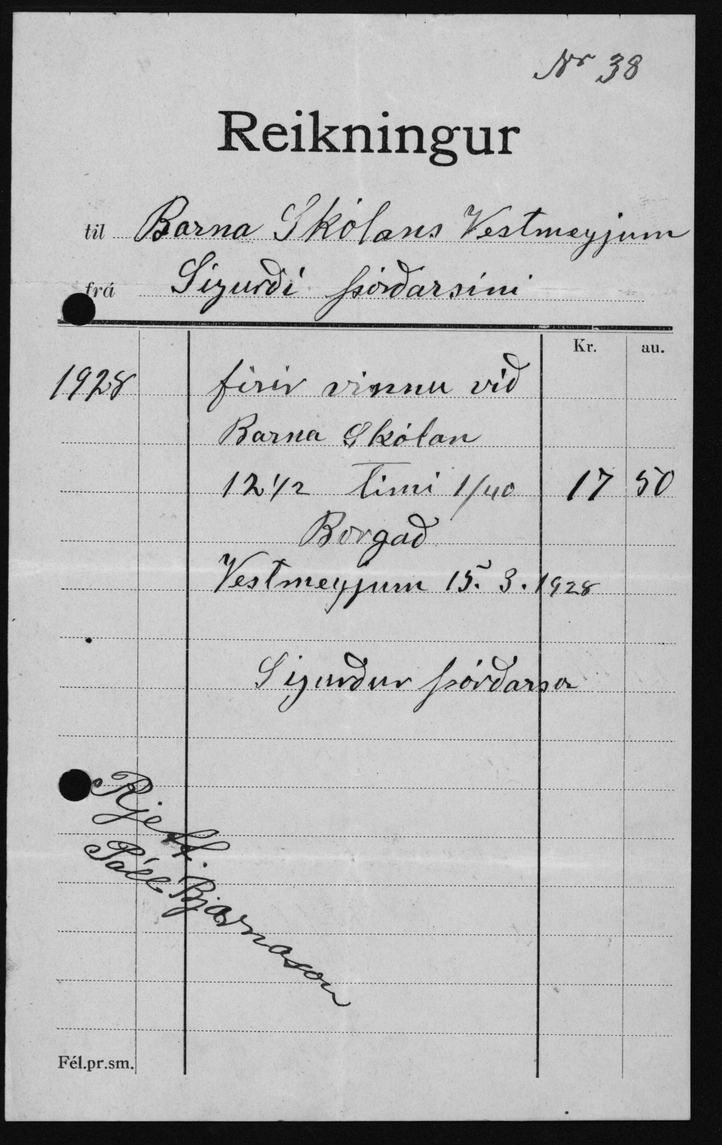 Nr 38
Reikningur
til Barna Skólans Vestmeyjum
frá Sigurði Þórðarsini
Kr. au.
1928 firir vinnu við
Barna Skólan
12 1/2 Timi 1/40 17 50
Borgað
Vestmeyjum 15. 3. 1928
Sigurður Þórðarson
Rjett.
Páll Bjarnason
Fél.pr.sm.